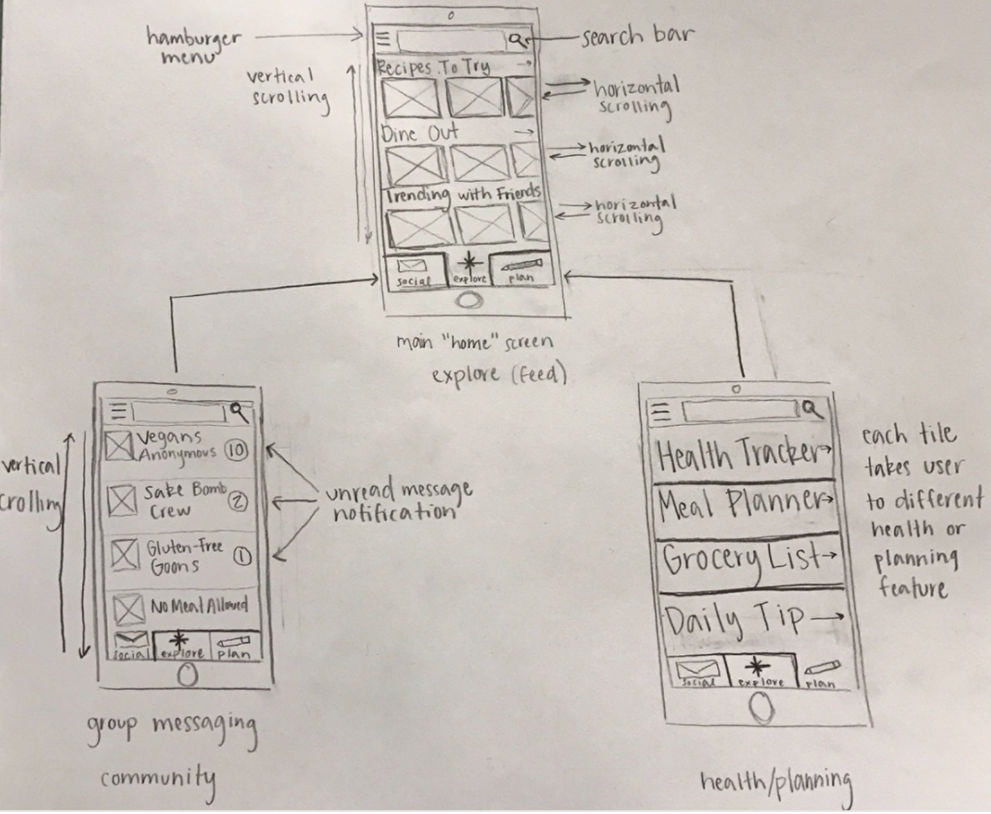 hamburger
menu
search bar
Recipes To Try
vertical
scrolling
horizontal
scrolling
Dine Out
horizontal
scrolling
Trending with Friends
horizontal
scrolling
social
explore
plan
main "home" screen
explore (feed)
Vegans
Anonymous 10
Sake Bomb
Crew 2
Gluten-Free
Goons 1
No Meat Allowed
social
explore
plan
vertical
crolling
unread message
notification
group messaging
community
Health Tracker
Meal Planner
Grocery List
Daily Tip
social
explore
plan
each tile
takes user
to different
health or
planning
feature
health/planning